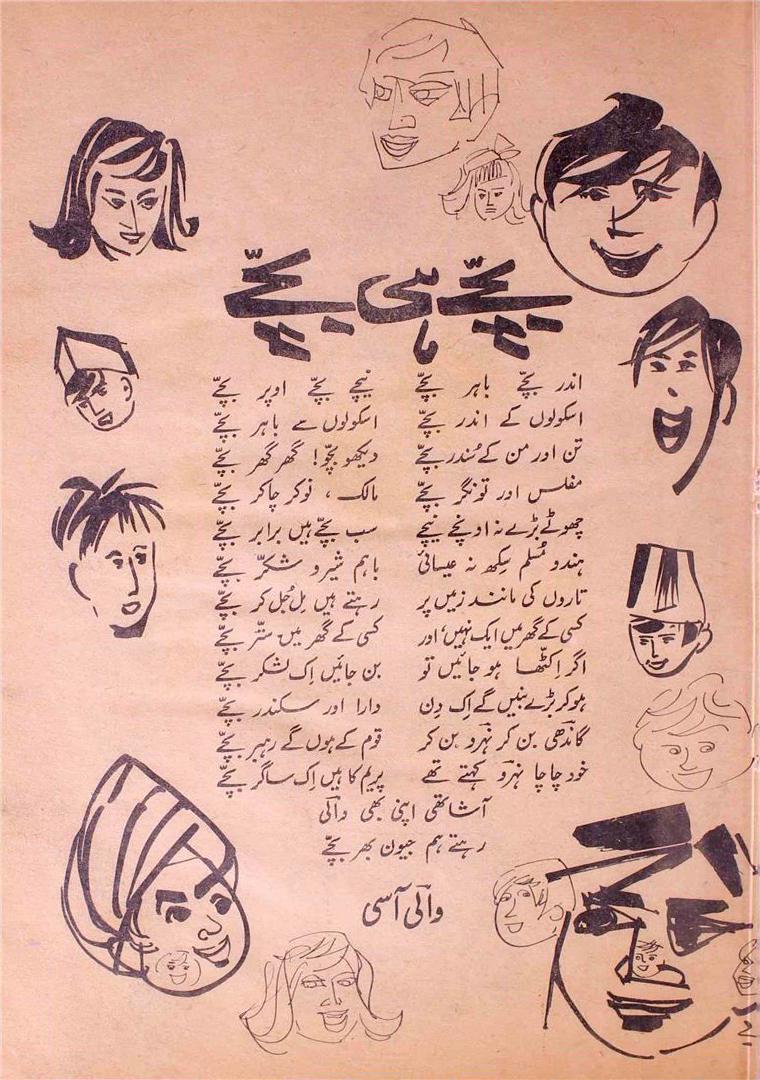 بچّے ہی بچّے
اندر بچّے باہر بچّے نیچے بچّے اوپر بچّے
اسکولوں کے اندر بچّے اسکولوں سے باہر بچّے
تن اور من کے سُندر بچّے دیکھو بچّو! گھر گھر بچّے
مفلس اور تونگر بچّے مالک، نوکر چاکر بچّے
چھوٹے بڑے نہ اونچے نیچے سب بچّے ہیں برابر بچّے
ہندو مُسلم سِکھ نہ عیسائی باہم شیر و شکّر بچّے
تاروں کی مانند زمیں پر رہتے ہیں مِل جُل کر بچّے
کسی کے گھر میں ایک نہیں، اور کسی کے گھر میں ستّر بچّے
اگر اِکٹھا ہو جائیں تو بن جائیں اِک لشکر بچّے
ہو کر بڑے بنیں گے اِک دِن دارا اور سکندر بچّے
گاندھی بن کر نہرو بن کر قوم کے ہوں گے رہبر بچّے
خود چاچا نہرو کہتے تھے پریم کا ہیں اِک ساگر بچّے
آشا تھی اپنی بھی والی
رہتے ہم جیون بھر بچّے
والی آسی